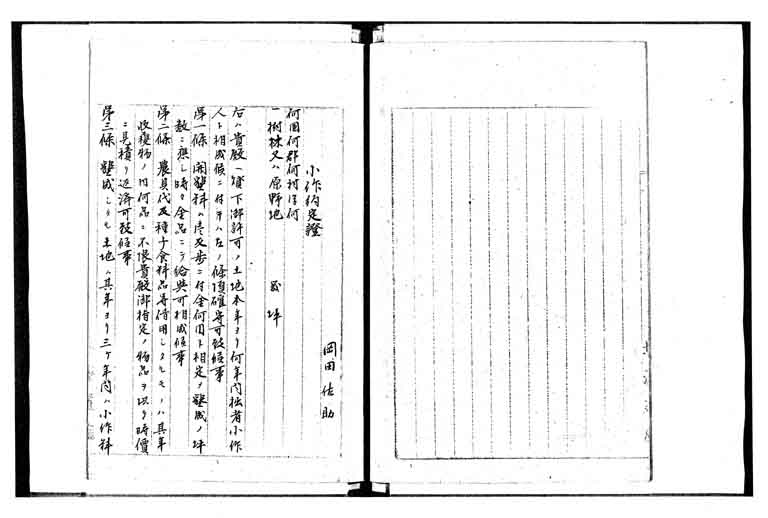 岡田佐助
小作約定證
何国何郡何村字何
一樹林又ハ原野地　　　　　何坪
右ハ貴殿ヘ貸下御許可ノ土地本年ヨリ何年間拙者小作
人ト相成候ニ付テハ左ノ條項確守可致候事
第一條　開墾料ハ壱反歩ニ付金何円ト相定メ墾成ノ坪
数ニ應シ時々金品ニテ給與可相成候事
第二條　農具代及種子食料品等借用シタルモノハ其年
収穫物ノ内何品ニ不限貴殿御指定ノ物品ヲ以テ時價
ニ見積リ返済可致候事
第三條　墾成シタル土地ハ其年ヨリ三ケ年間ハ小作料